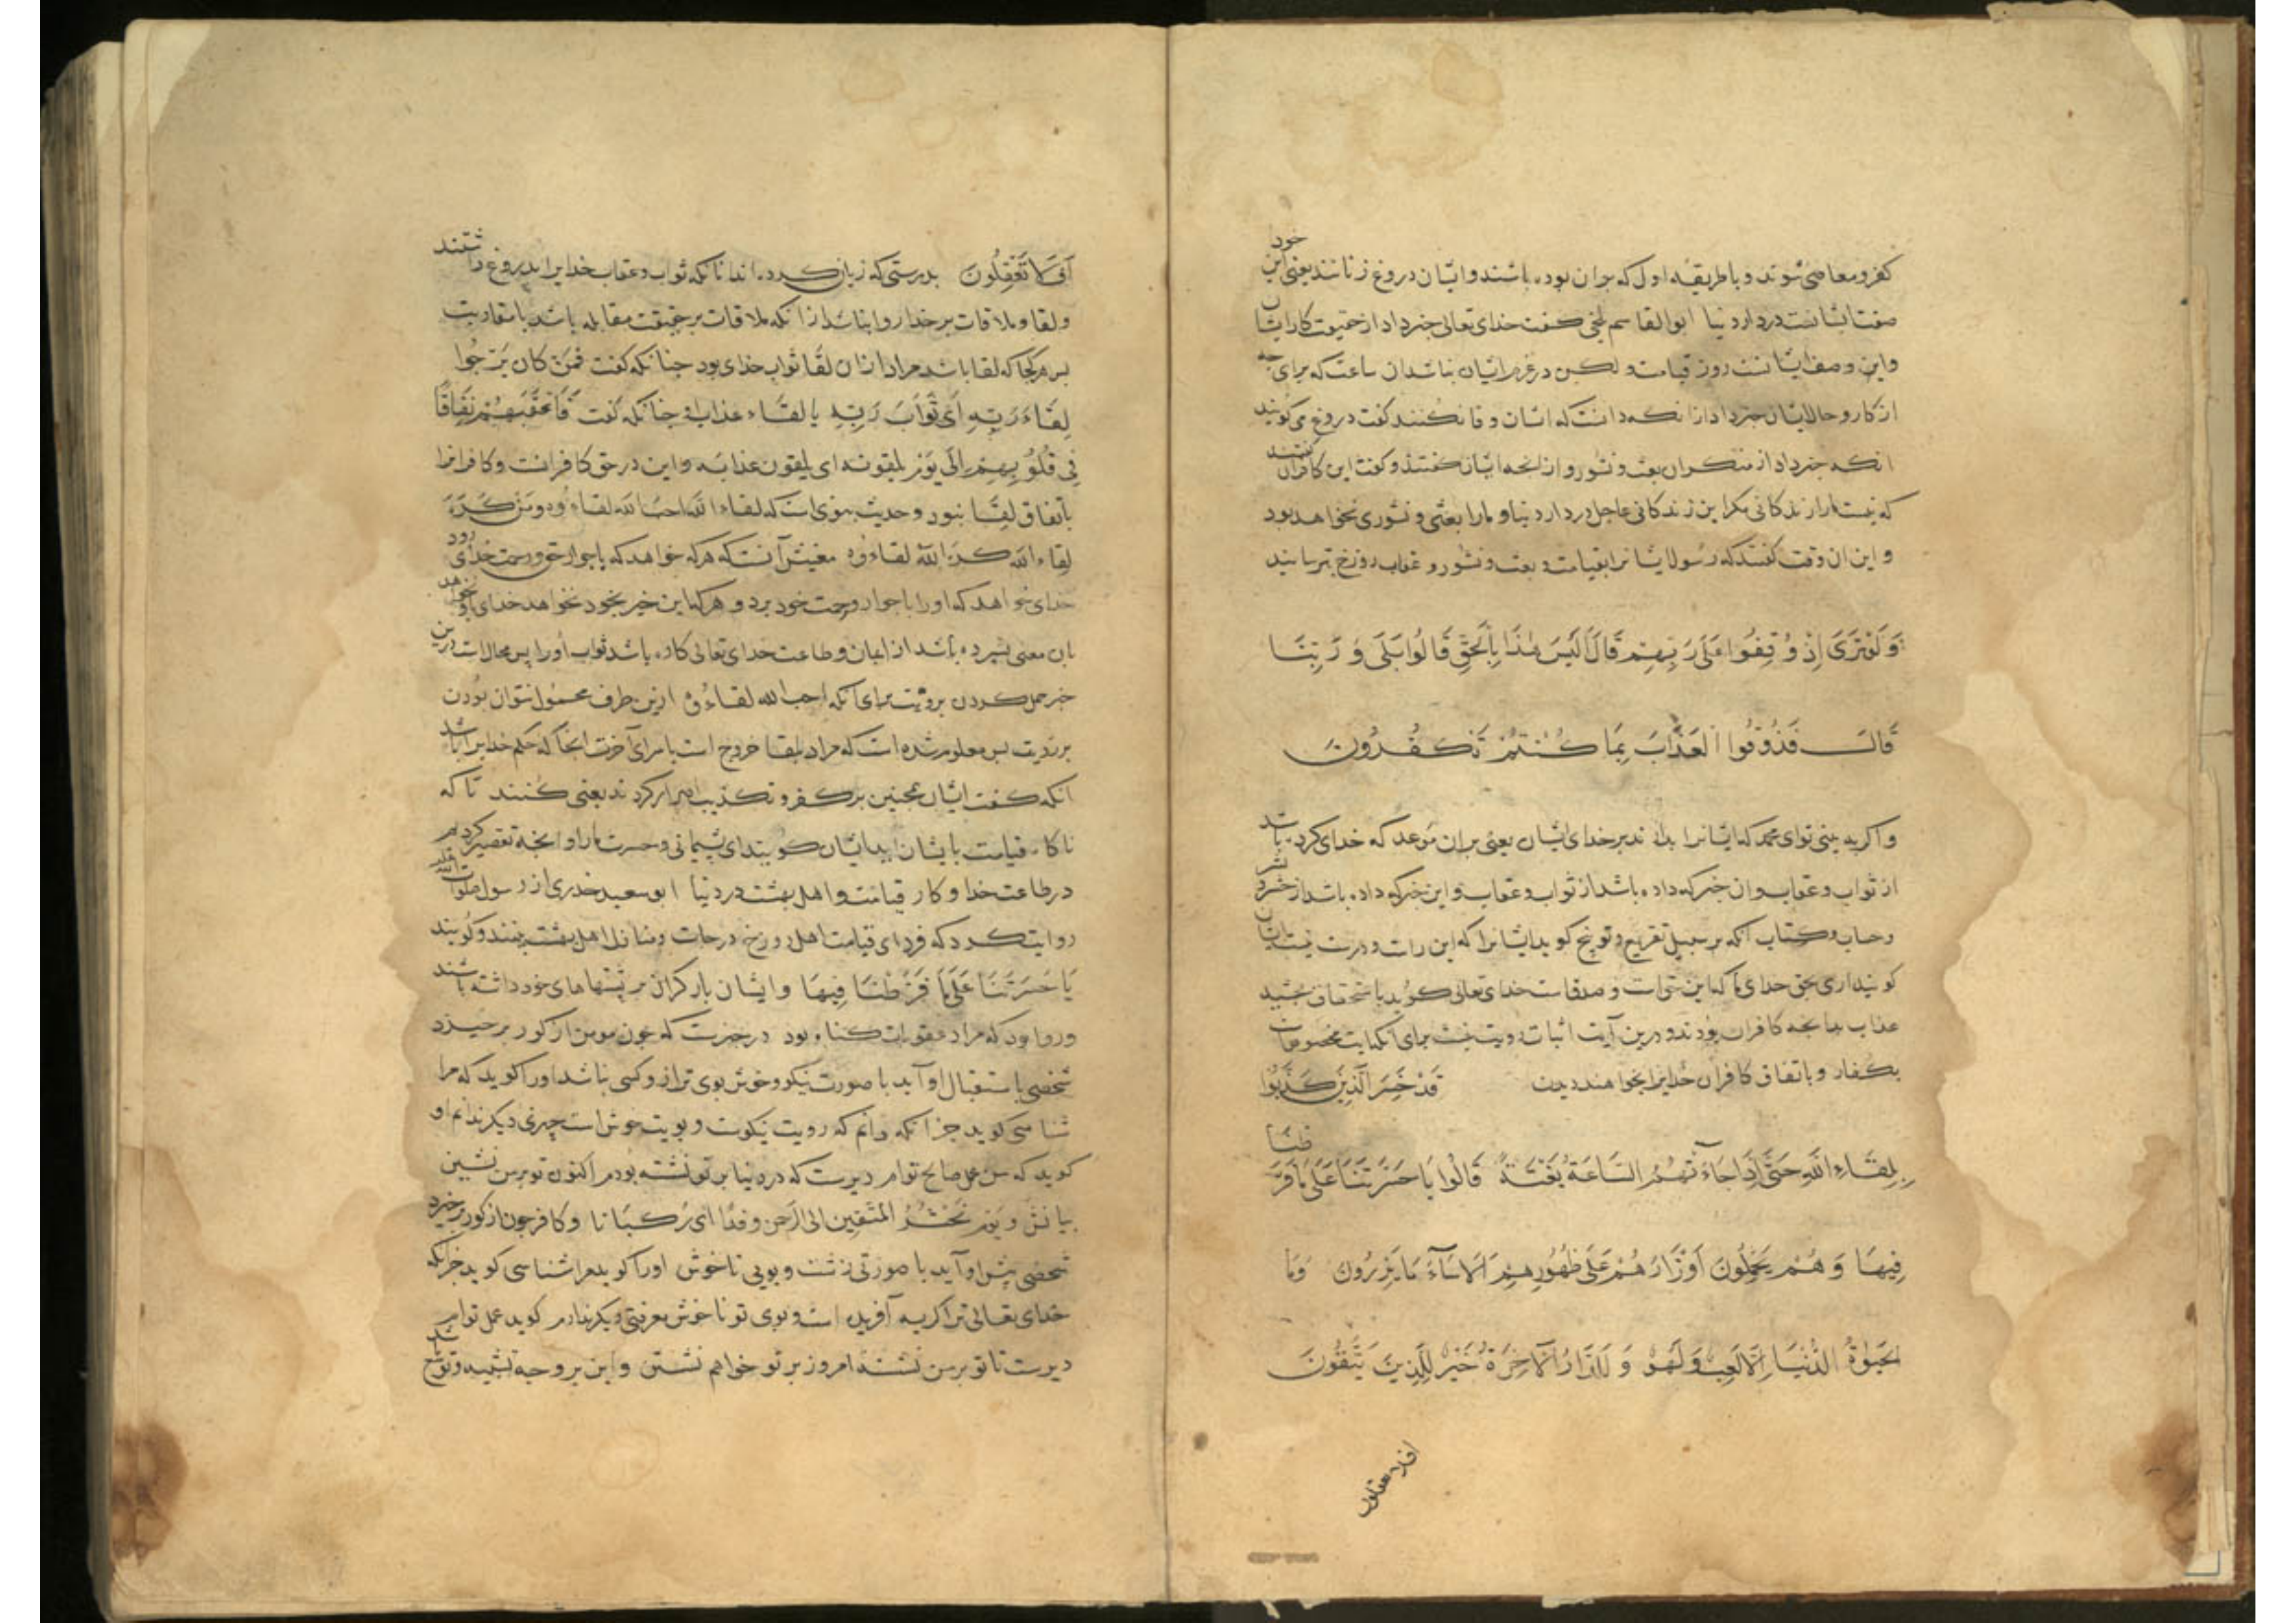 کفر و معاصی شوند و با طریقه اول که بر ان بوده باشند و ایشان دروغ زنانند یعنی این خود
صفت ایشانست در دار دنیا ابو القاسم بلخی کفت خدای تعالی خبر داد از حقیقت کار ایشان
و این وصف ایشانست روز قیامت و لکن در غرور ایشان نباشد ان ساعت که برای چه
از کار و حال ایشان خبر داد از انکه دانست که ایشان وفا نکنند کفت دروغ می کویند
انکه خبر داد از منکران بعث و نشور و از انچه ایشان کفتند و کفت این کافران کفتند
که نیست ما را زندکانی مکر این زندکانی عاجل در دار دنیا و ما را بعثی و نشوری نخواهد بود
و این ان وقت کفتند که رسول ایشانرا بقیامت و بعث و نشور و عقاب دوزخ بترسانید
وَ لَوْ تَرَى إِذْ وُقِفُوا عَلَى رَبِّهِمْ قَالَ أَلَيْسَ هَذَا بِالْحَقِّ قَالُوا بَلَى وَ رَبِّنَا
قَالَ فَذُوقُوا الْعَذَابَ بِمَا كُنْتُمْ تَكْفُرُونَ
و اکر به بینی تو ای محمد که ایشانرا بدارند بر خدای ایشان یعنی بر ان موعد که خدای کرده باشد
از ثواب و عقاب و ان خبر که داده باشد از ثواب و عقاب و این خبر که داده باشد از حشر و نشر
و حساب و کتاب انکه بر سبیل تقریع و توبیخ کوید ایشانرا که این راست و درست نیست ایشان
کویند اری بحق خدای ما که این حق است و صدق است خدای تعالی کوید باستحقاق بچشید
عذاب بدانچه کافران بودند و درین آیت اثبات رویت نیست برای انکه ایت مخصوص است
بکفار و باتفاق کافران خدایرا نخواهند دیدن قَدْ خَسِرَ الَّذِينَ كَذَّبُوا
بِلِقَاءِ اللّٰهِ حَتَّى إِذَا جَاءَتْهُمُ السَّاعَةُ بَغْتَةً قَالُوا يَا حَسْرَتَنَا عَلَى مَا فَرَّطْنَا
فِيهَا وَ هُمْ يَحْمِلُونَ أَوْزَارَهُمْ عَلَى ظُهُورِهِمْ أَلَا سَآءَ مَا يَزِرُونَ وَمَا
الحَيَوٰةُ الدُّنْيَا إِلَّا لَعِبٌ وَ لَهْوٌ وَ لَلدَّارُ الْآخِرَةُ خَيْرٌ لِلَّذِينَ يَتَّقُونَ
افلا تعقلون
أَفَلَا تَعْقِلُونَ بدرستی که زیان کرده اند انانکه ثواب و عقاب خدایرا بدروغ داشتند
و لقا و ملاقات بر خدا روا نباشد از انکه ملاقات بر حقیقت مقابله باشد یا مقاربت
بس هر کجا که لقا باشد مراد از ان لقا ثواب خدای بود چنانکه کفت فمن كان يرجوا
لِقَاءَ رَبِّهِ أَي ثَوَابَ رَبِّهِ یا لقاء عذاب او چنانکه کفت فَأَعْقَبَهُمْ نِفَاقًا
فِي قُلُوبِهِمْ إِلَى يَوْمِ يلقونه ای یلقون عذابه و این در حق کافرانست و کافرانرا
باتفاق لقا نبود و حدیث نبوی است که لقاء الله احب الله لقاءه و من كره
لقاء الله كره الله لقاءه معنیش آنست که هر که خواهد که با جوار حق و رحمت خدای رود
خدای خواهد که او را با جوار رحمت خود برد و هر که این خیر بخود نخواهد خدای باو نخواهد
باین معنی
خبر حمل کردن بر رویت برای انکه احب الله لقاءه ازین طرف محمول نتوان بودن
بر رویت بس معلوم شده است که مراد بلقا خروج است با سرای آخرت انجا که حکم خدایرا باشد
انکه کفت ایشان همچنین بر کفر و تکذیب اصرار کردند یعنی کنند تا که
ناکاه قیامت بایشان اید ایشان کویند ای پشیمانی و حسرت ما را و انچه تقصیر کردیم
در طاعت خدا و کار قیامت و اهل بهشت در دنیا ابو سعید خدری از رسول صلوات الله علیه
روایت کرد که فردای قیامت اهل دوزخ درجات و منازل اهل بهشت بینند و کویند
يَا حَسْرَتَنَا عَلَى مَا فَرَّطْنَا فِيهَا و ایشان بار کران بر پشتهای خود داشته باشند
و روا بود که مراد عقوبات کناه بود در خبرست که چون مومن از کور برخیزد
شخصی باستقبال او آید با صورت نیکو و خوش بوی تر از و کسی نباشد او را کوید که مرا
شناسی کوید جز انکه دانم که رویت نیکوست و بویت خوش است چیزی دیکر ندانم او
کوید که من عمل صالح توام دیرست که در دنیا بر تو نشسته بودم اکنون تو بر من نشین
بیانش و یوم نحشر المتقين الى الرحمن وفدا ای رکبانا و کافر چون از کور برخیزد
شخصی پیش او آید با صورتی زشت و بویی ناخوش او را کوید مرا شناسی کوید جز انکه
خدای تعالی ترا کریه آفریده است و بوی تو ناخوش معرفتی دیکر ندارم کوید عمل توام
دیرست تا تو بر من نشسته امروز بر تو خواهم نشستن و این بر وجه تشبیه و توسع باشد